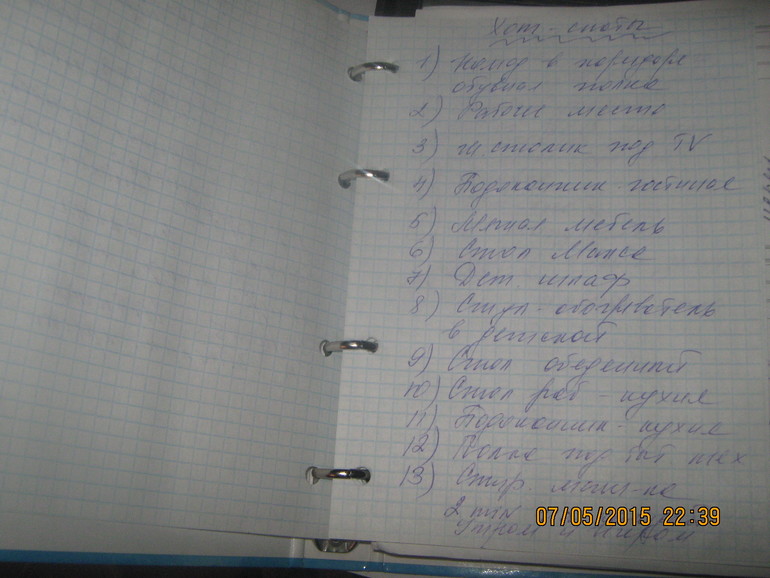 Хот-споты
1) Комод в коридоре
обувная полка
2) Рабочее место
3) столик под TV
4) Подоконник гостиная
5) Мягкая мебель
6) Стол Макса
7) Дет. шкаф
8) Стул-обогреватель
в детской
9) Стол обеденный
10) Стол раб-кухня
11) Подоконник-кухня
12) Полка под быт тех
13) Стир. маш-ка
Утром и
07/05/2015 22:39